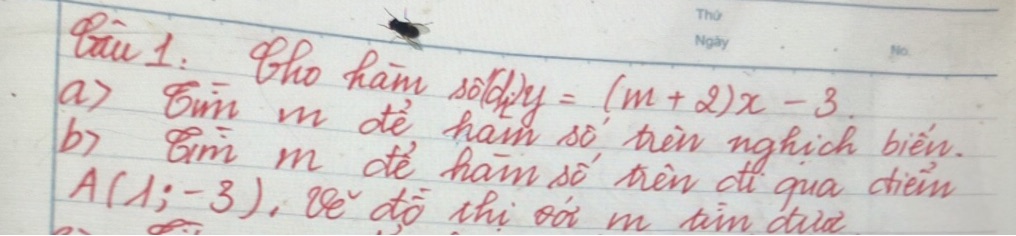 Thứ
Ngày
No.
Câu 1: Cho hàm số (d₁) y = (m + 2)x - 3.
a> Tìm m để hàm số trên nghịch biến.
b> Tìm m để hàm số trên đi qua điểm
A(1; -3). Vẽ đồ thị với m tìm được